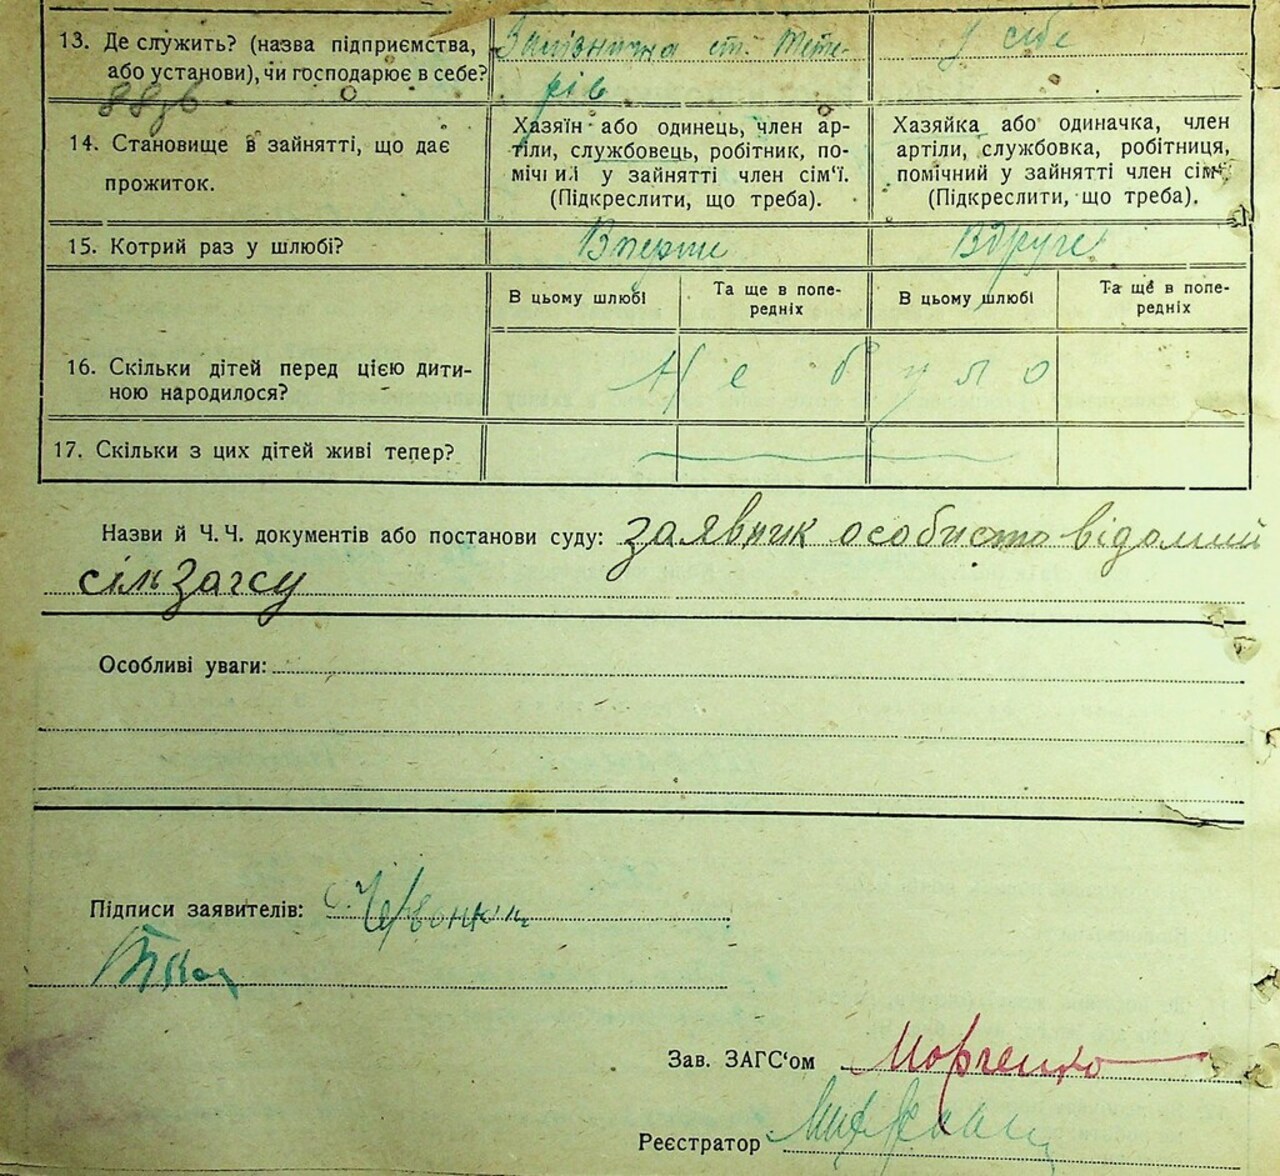 13. Де служить? (назва підприємства, або установи), чи господарює в себе?
Залізнична ст. Тете-
рів
у сібе
14. Становище в зайнятті, що дає прожиток.
Хазяїн або одинець, член ар-
тіли, службовець, робітник, по-
мічний у зайнятті член сім'ї.
(Підкреслити, що треба).
Хазяйка або одиначка, член
артіли, службовка, робітниця,
помічний у зайнятті член сім'ї.
(Підкреслити, що треба).
15. Котрий раз у шлюбі?
Вперше
Вдруге
В цьому шлюбі
Та ще в попе-
редніх
В цьому шлюбі
Та ще в попе-
редніх
16. Скільки дітей перед цією дити-
ною народилося?
Не було
17. Скільки з цих дітей живі тепер?
Назви й Ч. Ч. документів або постанови суду: заявник особисто відомий
сільзагсу
Особливі уваги:
Підписи заявителів: Червонюк
Зав. ЗАГС'ом
Реєстратор